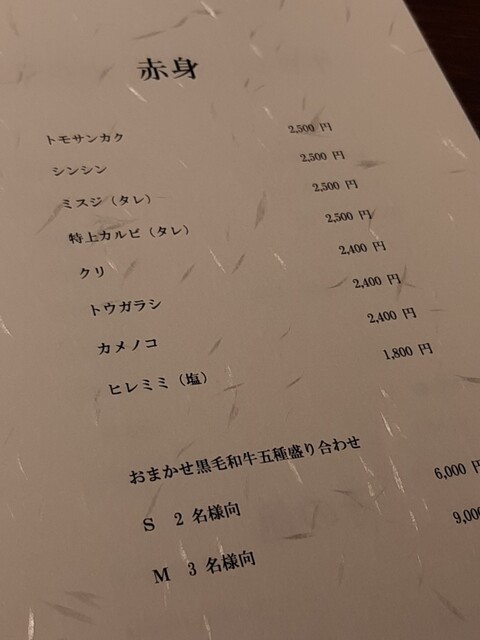 赤身
トモサンカク 2,500 円
シンシン 2,500 円
ミスジ（タレ） 2,500 円
特上カルビ（タレ） 2,500 円
クリ 2,400 円
トウガラシ 2,400 円
カメノコ 2,400 円
ヒレミミ（塩） 1,800 円
おまかせ黒毛和牛五種盛り合わせ
S 2 名様向 6,000 円
M 3 名様向 9,000